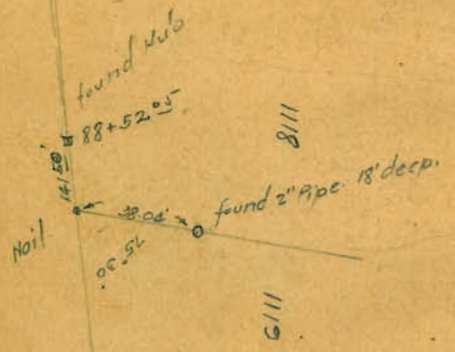 found Hub
88+52.05
14.50'
Nail
38.04'
found 2" Pipe. 18' deep.
15° 30'
1118
1119